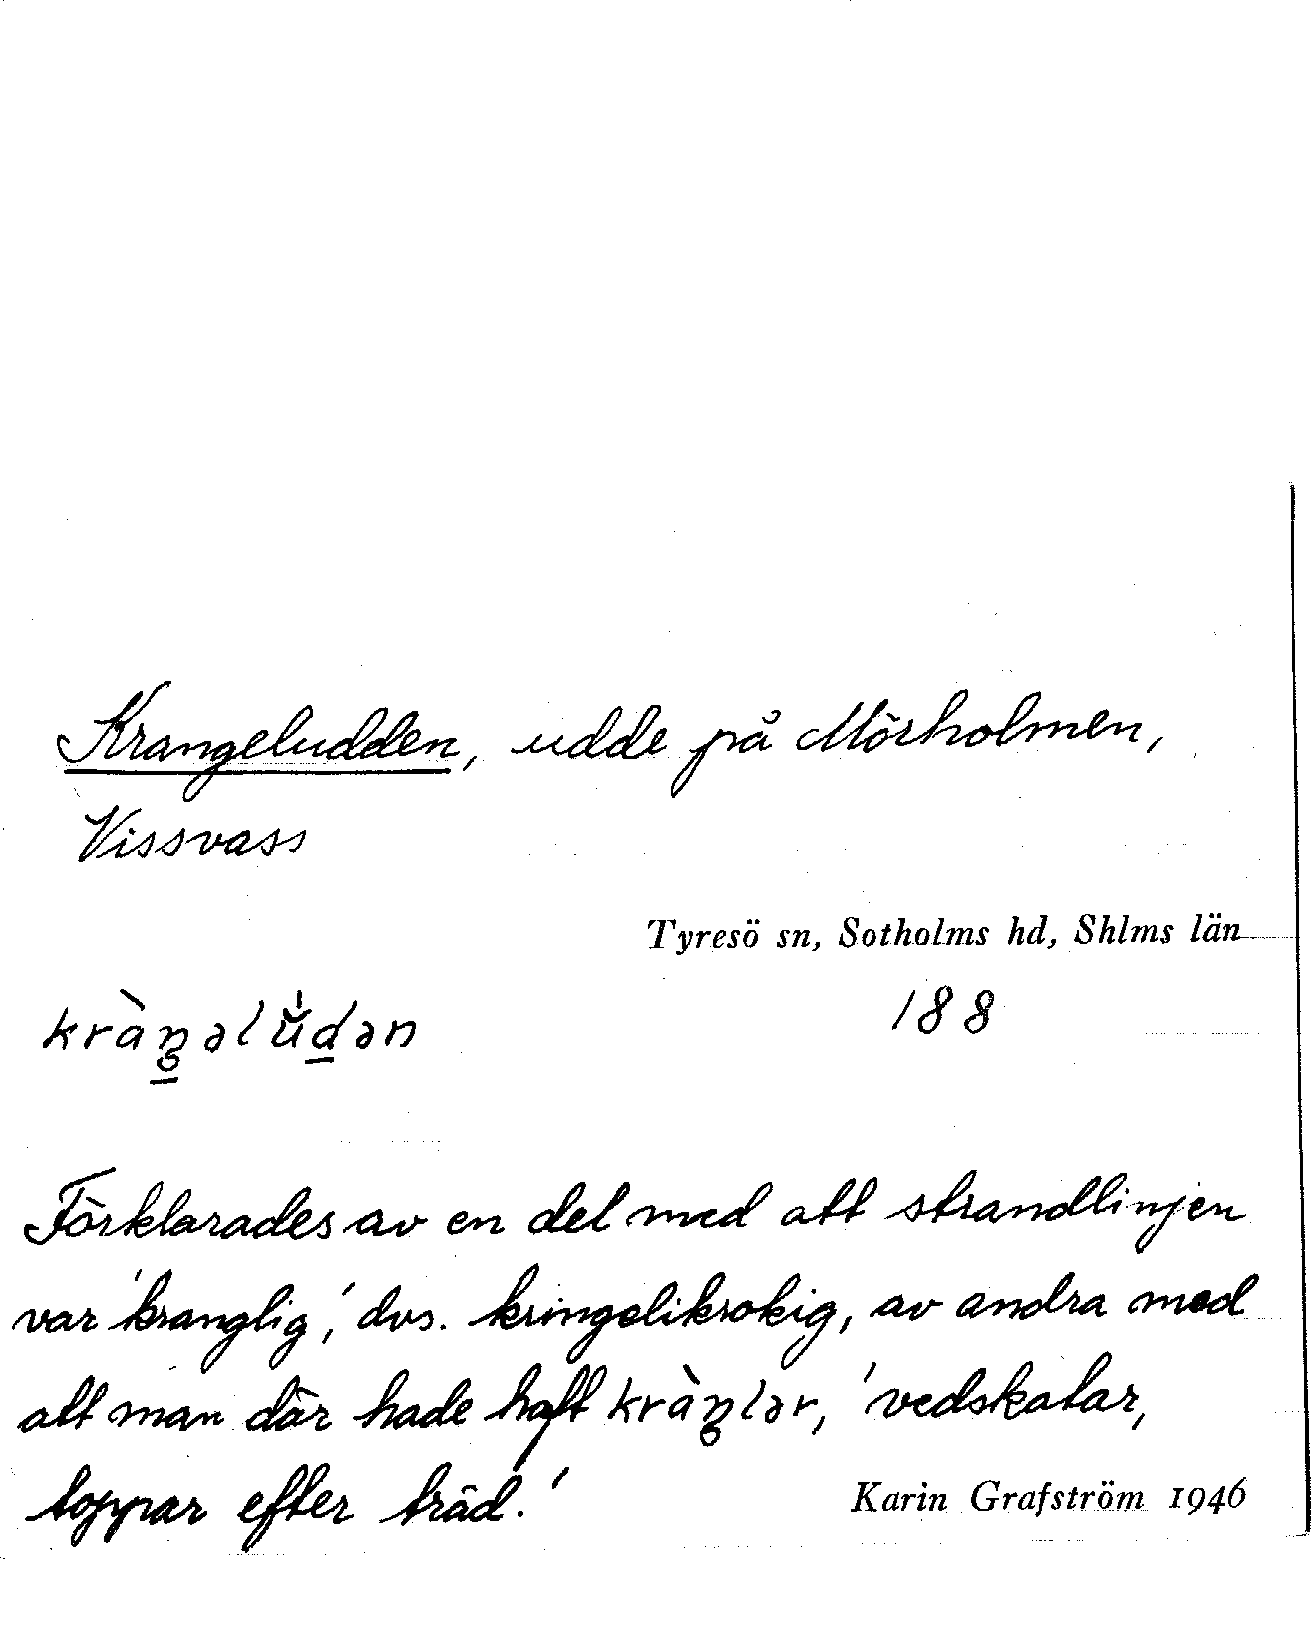 Krangeludden, udde på Mörholmen,
Vissvass
Tyresö sn, Sotholms hd, Shlms län
kràŋ̲əlŭ̍d̲ən 188
Förklarades av en del med att strandlinjen
var 'kranglig', dvs. kringelikrokig, av andra med
att man där hade haft kràŋlər, 'vedskatar,
toppar efter träd.'
Karin Grafström 1946